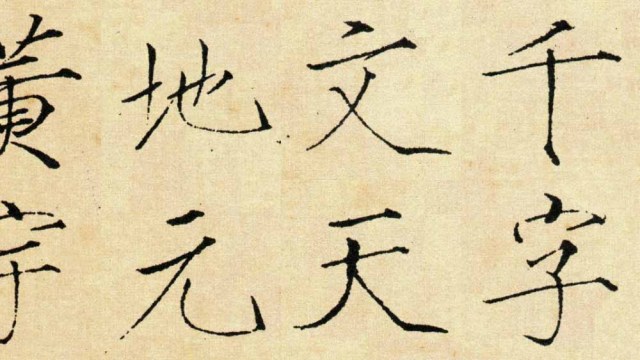 千字
文天
地元
黄宇